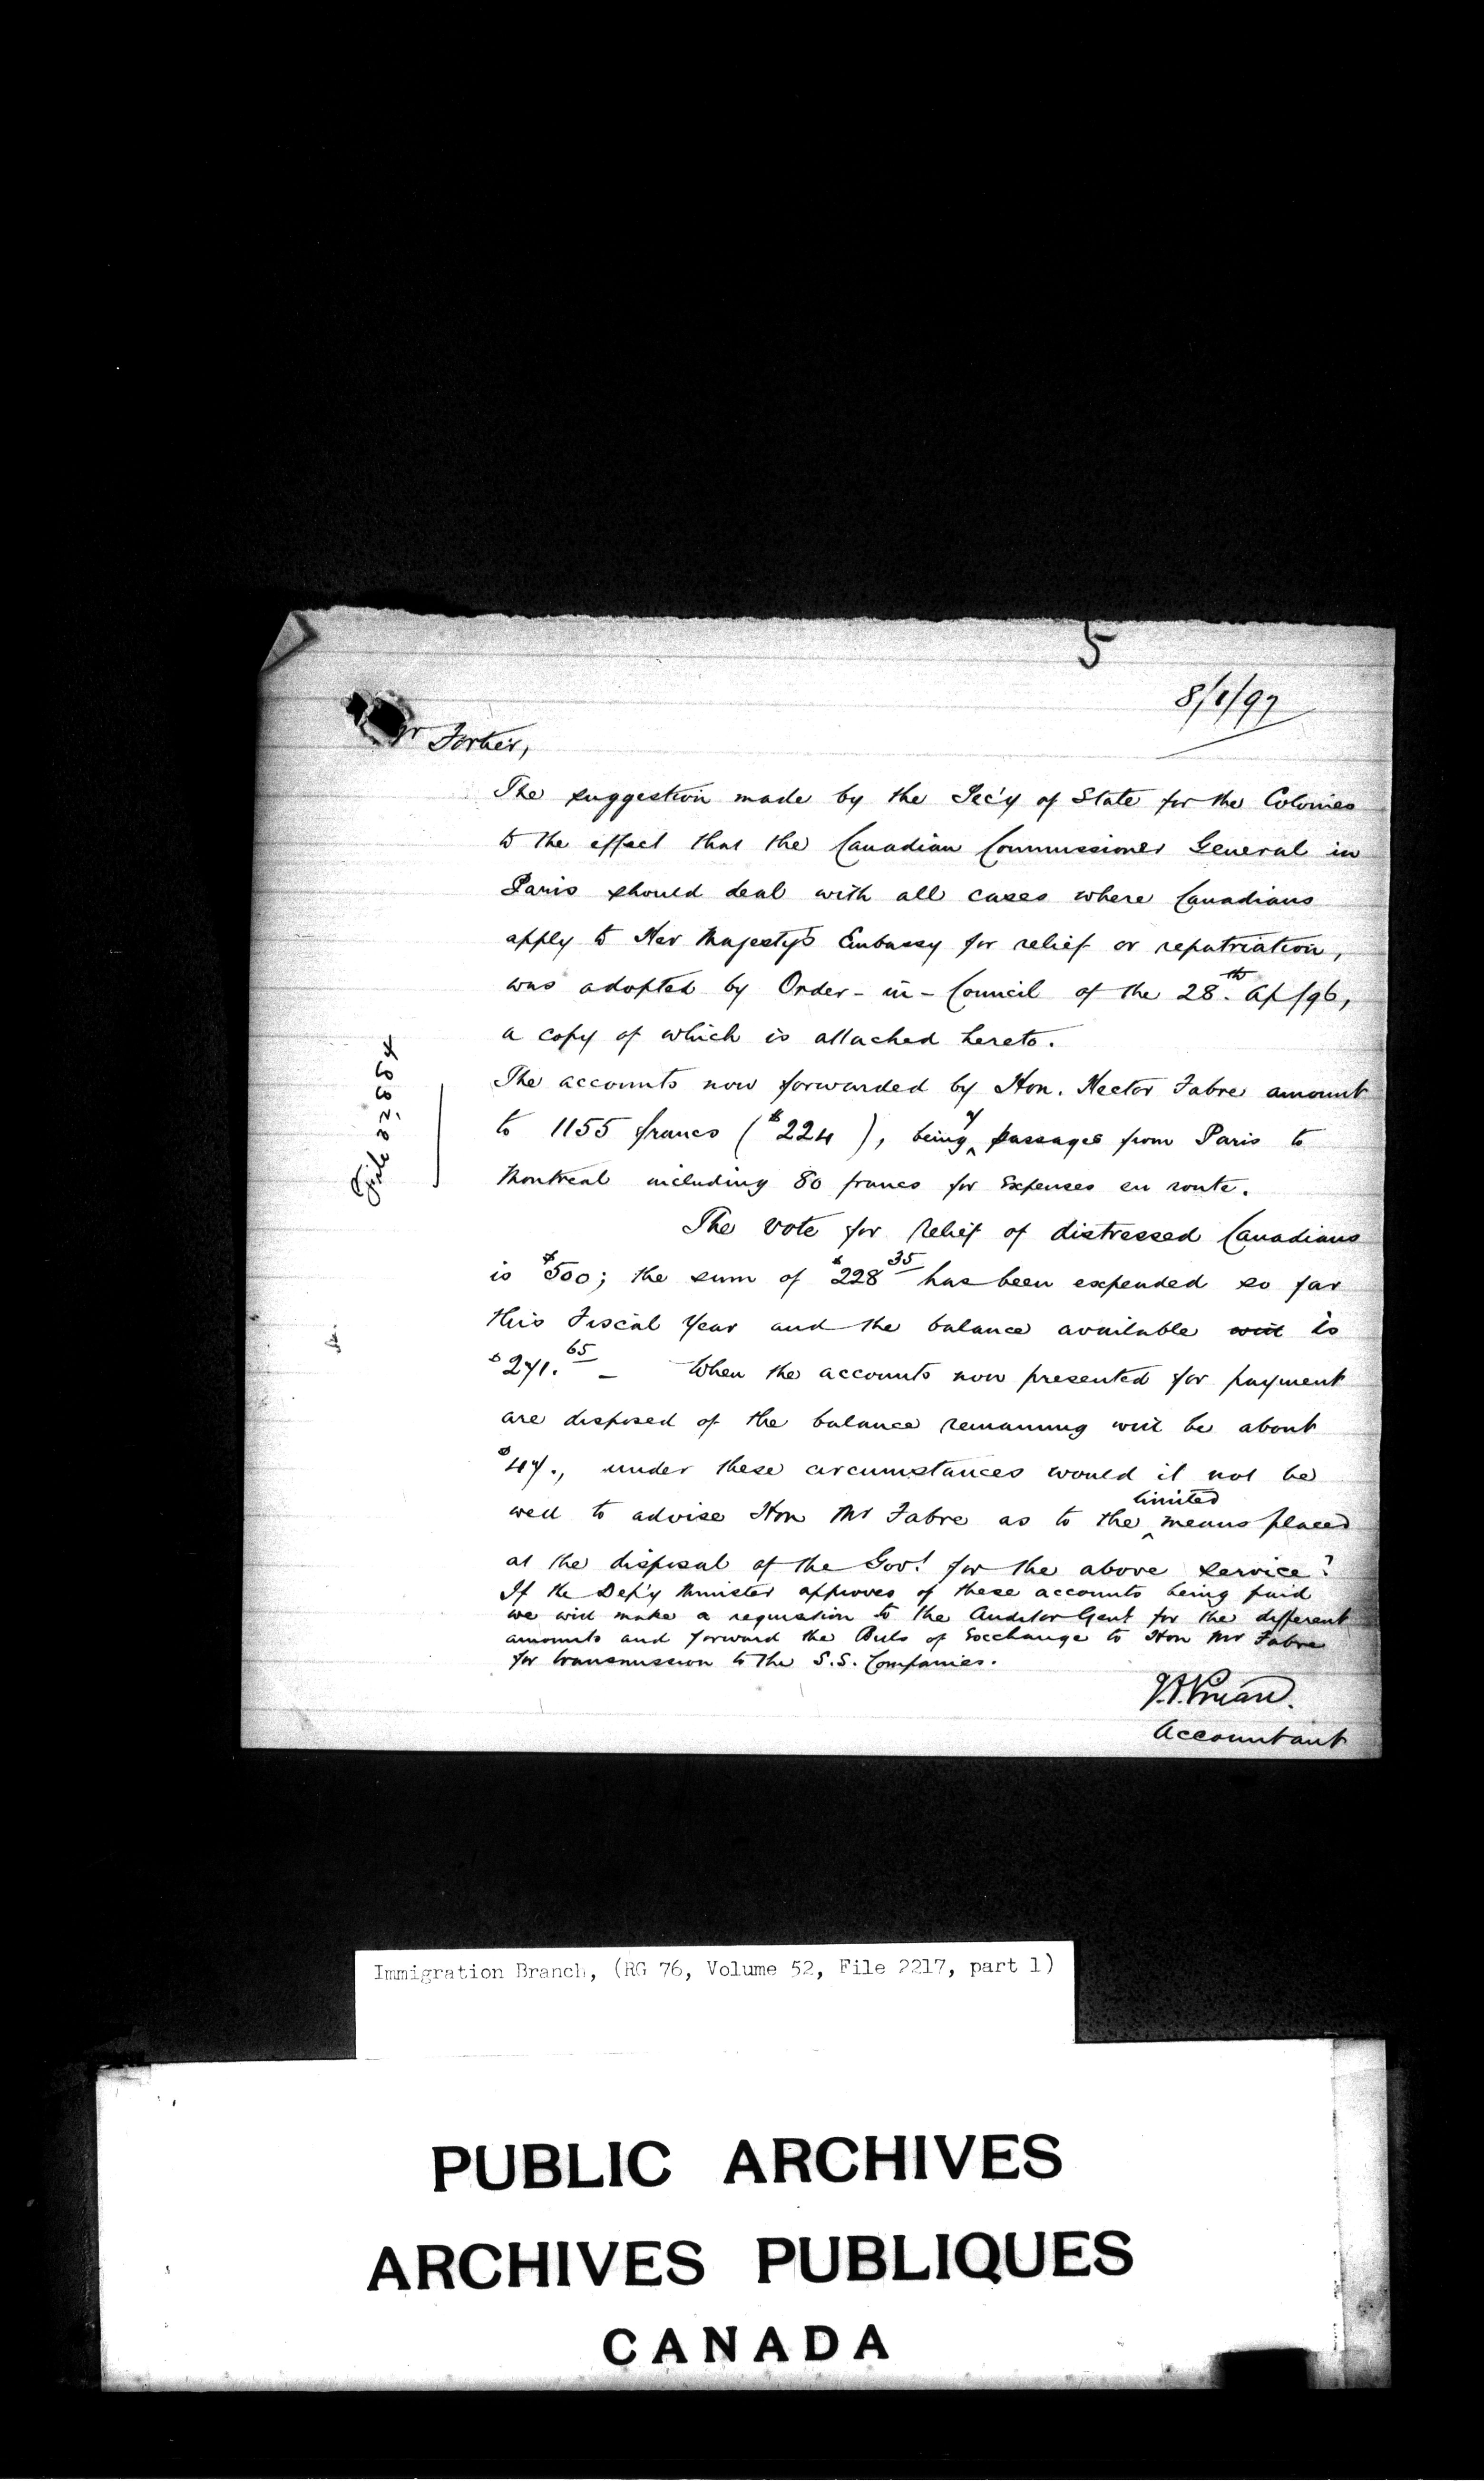 5
8/1/97
Mr Fortier,
The suggestion made by the Sec'y of State for the Colonies
to the effect that the Canadian Commissioner General in
Paris should deal with all cases where Canadians
apply to Her Majesty's Embassy for relief or repatriation,
was adopted by Order-in-Council of the 28.th Ap/96,
a copy of which is attached hereto.
The accounts now forwarded by Hon. Hector Fabre amount
to 1155 francs ($224), being 7 passages from Paris to
Montreal including 80 francs for Expenses en route.
The vote for relief of distressed Canadians
is $500; the sum of $228 35 has been expended so far
this Fiscal Year and the balance available will is
$271. 65 – When the accounts now presented for payment
are disposed of the balance remaining will be about
$47., under these circumstances would it not be
well to advise Hon Mr Fabre as to the limited means placed
at the disposal of the Gov't for the above service?
If the Dep'y Minister approves of these accounts being paid
we will make a requisition to the Auditor Genl for the different
amounts and forward the Bills of Exchange to Hon Mr Fabre
for transmission to the S.S. Companies.
Accountant
File
Immigration Branch, (RG 76, Volume 52, File 2217, part 1)
PUBLIC ARCHIVES
ARCHIVES PUBLIQUES
CANADA